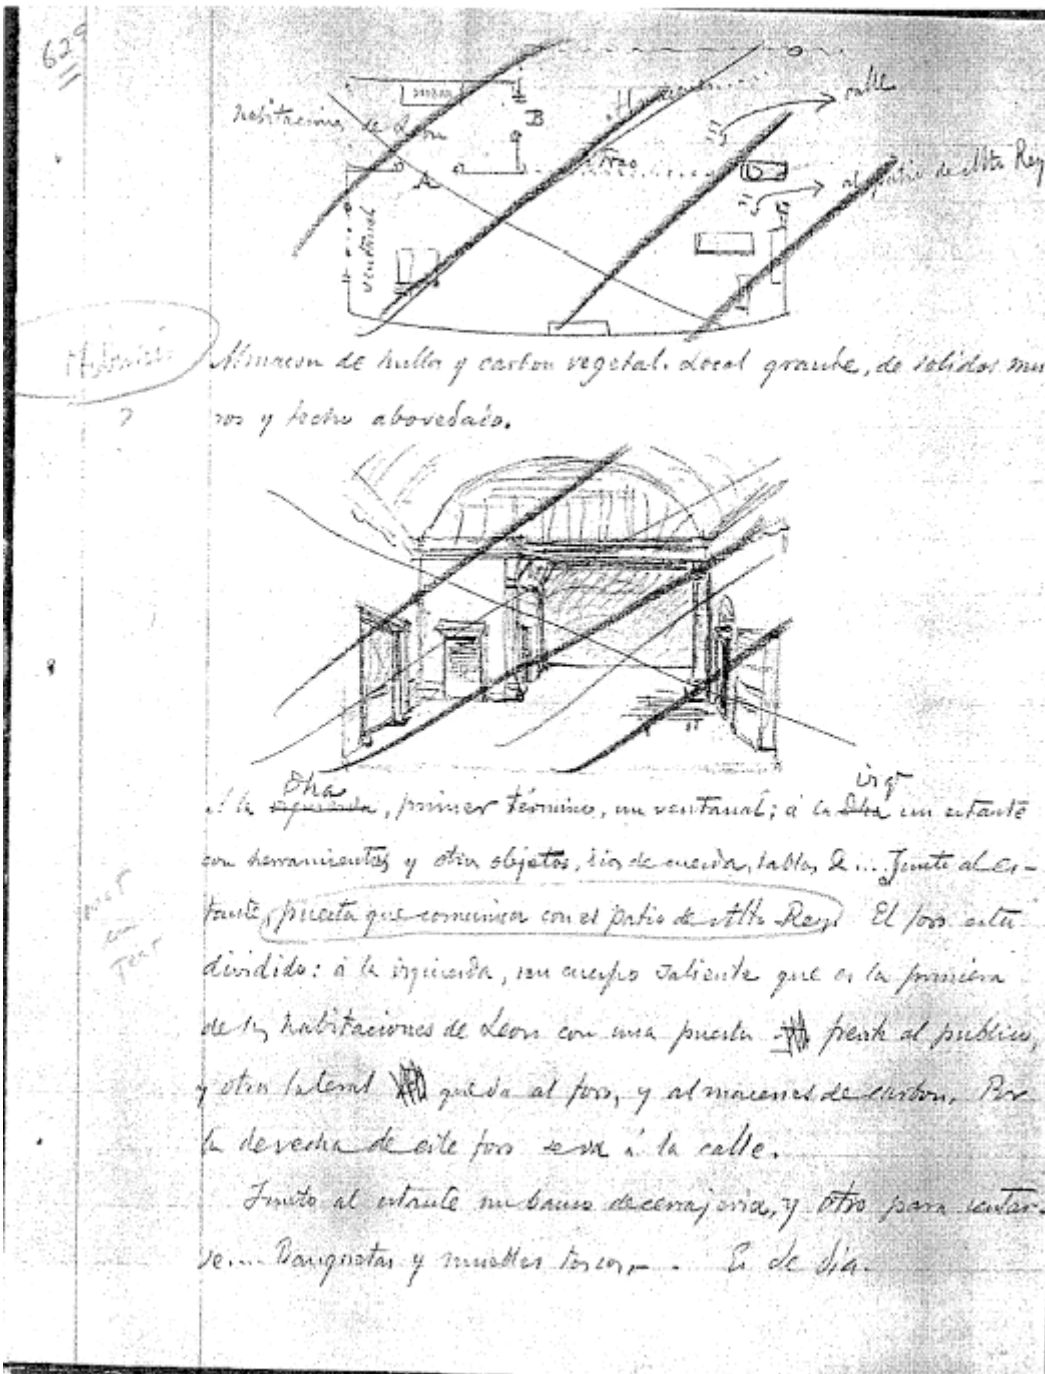 629
habitaciones de Leon
B
calle
Foro
al patio de Alta Rey
A
ventanal
Almacen de hulla y carbon vegetal. Local grande, de solidos mu
ros y techo abovedado.
Dha
irqª
A la izquierda, primer término, un ventanal; á la Dha un estante
con herramientas y otros objetos, lios de cuerda, tablas &... Junto al es-
tante, puerta que comunica con el patio de Alta-Rey. El foro está
dividido: á la izquierda, un cuerpo saliente que es la primera
de las habitaciones de Leon con una puerta frente al publico,
y otra lateral que da al foro, y almacenes de carbon. Por
la derecha de este foro se va á la calle.
Junto al estante un banco de cerrajeria, y otro para sentar-
se.... Banquetas y muebles toscos, - . Es de dia.